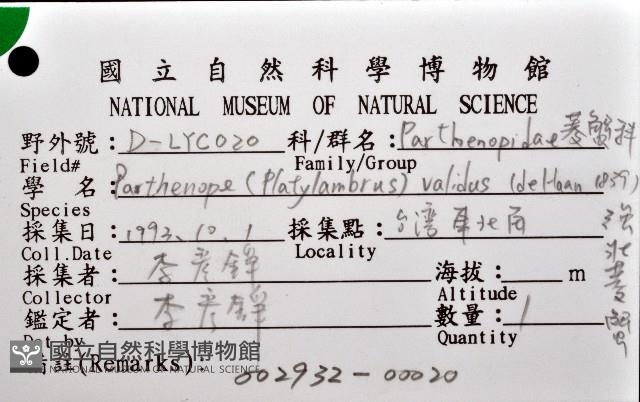 國立自然科學博物館
NATIONAL MUSEUM OF NATURAL SCIENCE
野外號：D-LYC020 科/群名：Parthenopidae 菱蟹科
Field# Family/Group
學 名：Parthenope (Platylambrus) validus (de Haan 1839)
Species 強壯菱蟹
採集日：1992.10.1 採集點：台灣東北角
Coll.Date Locality
採集者：李彥錚 海拔：m
Collector Altitude
鑑定者：李彥錚 數量：1
Det by Quantity
國立自然科學博物館
NATIONAL MUSEUM OF NATURAL SCIENCE
(Remarks):
002932-00020